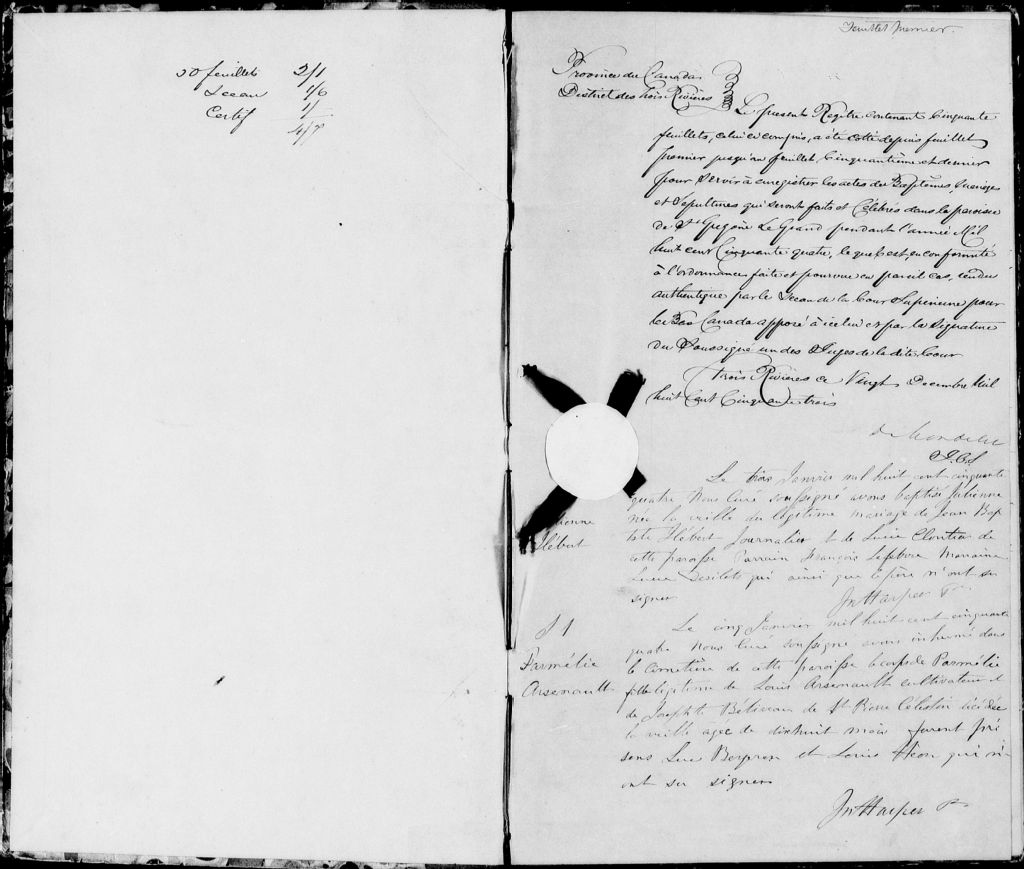 50 feuillets 2/1
Sceau 1/6
Certif 1/
4/7
Feuillet premier.
Province du Canada
District des Trois Rivières
Le présent Régître contenant Cinquante
feuillets, celui ci compris, a été cotté depuis feuillet
premier jusqu'au feuillet Cinquantième et dernier
pour servir à enregistrer les actes des Baptêmes, Mariages
et Sépultures qui seront faits et Célébrés dans la paroisse
de St Grégoire Le Grand pendant l'année Mil
huit cent Cinquante quatre, lequel est en conformité
à l'ordonnance faite et pourvue en pareil cas, rendu
authentique par le Sceau de la Cour Supérieure pour
le Bas Canada apposé à icelui et par la Signature
du Soussigné un des Juges de la dite Cour
Trois Rivières ce Vingt Decembre Mil
huit Cent Cinquante trois
J.C.S
Le trois Janvier mil huit cent cinquante
quatre Nous Curé soussigné avons baptisé Julienne
née la veille du légitime mariage de Jean Bap
tiste Hébert Journalier et de Lucie Cloutier de
cette paroisse Parrain François Lefebvre Marraine
Lucie Desilets qui ainsi que le père n'ont su
signer
Jn Harper Ptre
Hébert
S 1
Parmélie
Arsenault
Le cinq Janvier mil huit cent cinquante
quatre Nous Curé soussigné avons inhumé dans
le Cimetière de cette paroisse le corps de Parmélie
fille légitime de Louis Arsenault cultivateur et
de Josephte Béliveau de St Pierre Célestin décédée
la veille agée de dixhuit mois furent pré
sens Luc et Louis Héon qui n'
ont su signer
Jn Harper Ptre